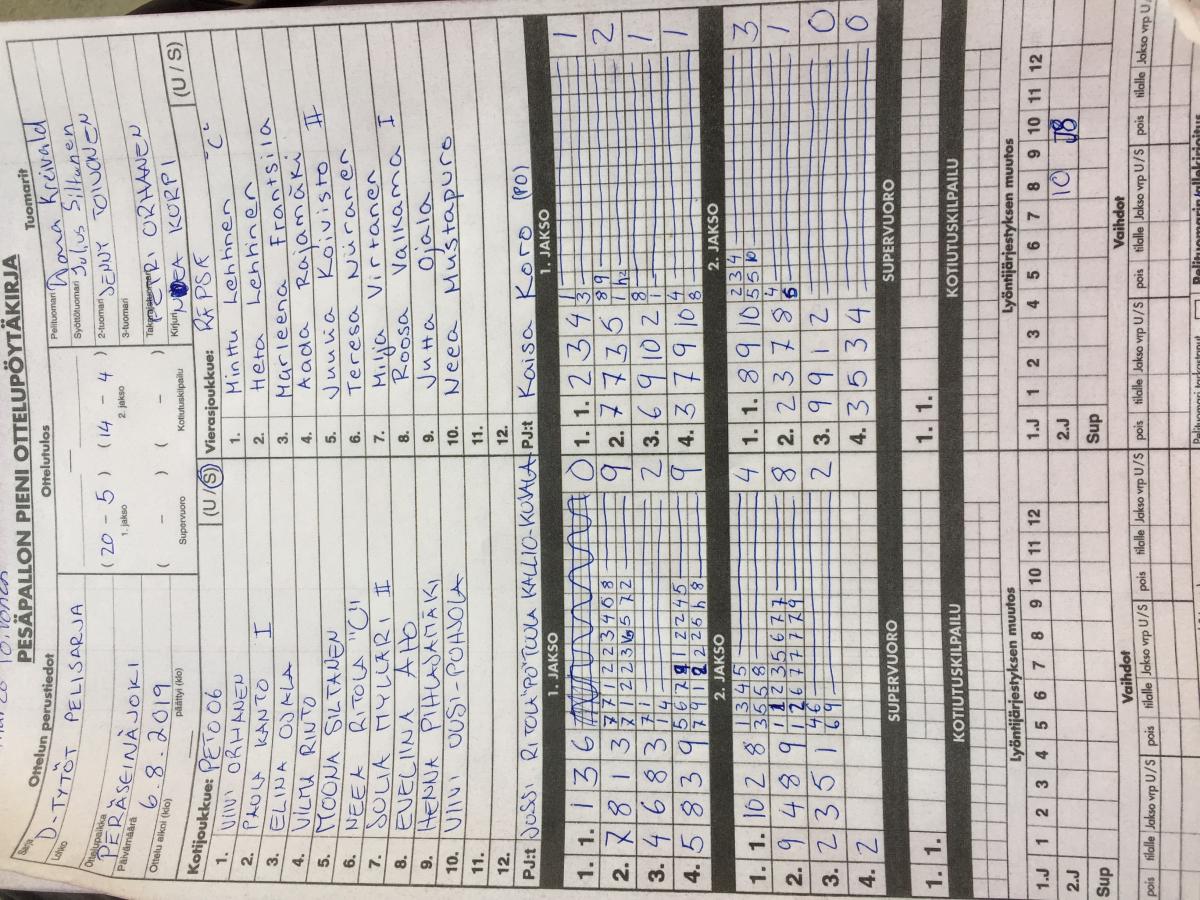 PESÄPALLON PIENI OTTELUPÖYTÄKIRJA
Ottelun perustiedot
Ottelutulos
Tuomarit
Sarja
D-TYTÖT PELISARJA
Lohko
Ottelupaikka
PERÄSEINÄJOKI
Päivämäärä
6.8.2019
Ottelu alkoi (klo)
päättyi (klo)
(20 - 5) (14 - 4)
1. jakso
2. jakso
( - ) ( - )
Supervuoro
Kotiutuskilpailu
Pelituomari
Syöttötuomari Julius Siltanen
2-tuomari JENNY TOIVONEN
3-tuomari
Takarajatuomari PETRI ORHANEN
Kirjuri KORPI
Kotijoukkue: PETO06 (U / S)
1. VIIVI ORHANEN
2. PAULA KANTO I
3. ELINA OJALA
4. VILTU RINTO
5. MOONA SILTANEN
6. NEEA RITOLA "C"
7. JULIA MYLLÄRI II
8. EVELIINA AHO
9. HENNA PIHLAJAMÄKI
10. VIIVI UUSI-POHJOLA
11.
12.
PJ:t JUSSI RITOLA "PO" TUULA KALLIO-KUJALA
Vierasjoukkue: REPSÄ (U / S)
1. Minttu Lehtinen "C"
2. Heta Lehtinen
3. Marleena Frantsila
4. Aada Rajamäki
5. Junia Koivisto II
6. Teresa Niiranen
7. Milja Virtanen
8. Roosa Valkama I
9. Jutta Ojala
10. Neea Mustapuro
11.
12.
PJ:t Kaisa Koro (PO)
1. JAKSO
1. 1. 1 3 6 0
2. 7 8 1 3 9
7 1 1 2 2 3 4 6 8
3. 4 6 8 3 2
7 1
1 4
4. 5 8 3 9 9
2. JAKSO
1. 1. 10 2 8 4
1 3 4 5
3 5 5 8
2. 9 4 8 9 8
3. 2 3 5 1 2
4 6
6 9
4. 2
SUPERVUORO
1. 1.
KOTIUTUSKILPAILU
1. JAKSO
1. 1. 2 3 4 1
1
3
2. 7 7 3 5 2
8 9
1 h2
3. 6 9 10 2 1
8
1
4. 3 7 9 10 1
4
8
2. JAKSO
1. 1. 8 9 10 3
2 3 4
5 5 10
2. 2 3 7 8 1
4
5
3. 9 9 1 2 0
4. 3 5 3 4 0
SUPERVUORO
1. 1.
KOTIUTUSKILPAILU
Lyöntijärjestyksen muutos
1.J 1 2 3 4 5 6 7 8 9 10 11 12
2.J
Sup
Vaihdot
pois tilalle Jakso vrp U / S pois tilalle Jakso vrp U / S pois tilalle Jakso vrp U / S
Lyöntijärjestyksen muutos
1.J 1 2 3 4 5 6 7 8 9 10 11 12
2.J 10 8
Sup
Vaihdot
pois tilalle Jakso vrp U / S pois tilalle Jakso vrp U / S pois tilalle Jakso vrp U